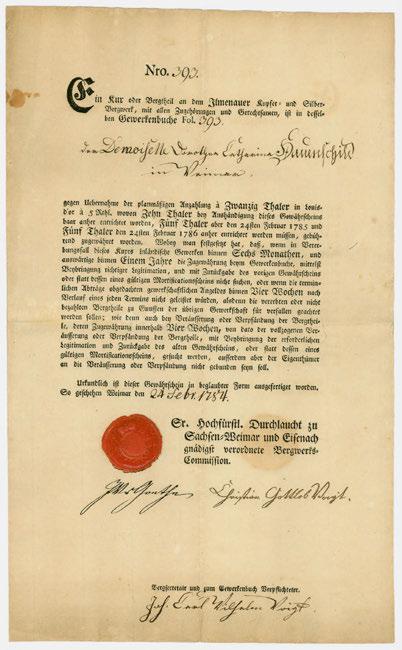 Nro. 393.
Ein Kux oder Bergtheil an dem Ilmenauer Kupfer- und Silber-
Bergwerk, mit allen Zugehörungen und Gerechtsamen, ist in dessel-
ben Gewerkenbuche Fol. 393
der Demoiselle Dorothea Catharina
in Weimar.
gegen Uebernahme der planmäßigen Anzahlung à Zwanzig Thaler in Louis-
d'or à 5 Rthl. wovon Zehn Thaler bey Aushändigung dieses Gewährscheins
baar anher entrichtet worden, Fünf Thaler aber den 24sten Februar 1785 und
Fünf Thaler den 24sten Februar 1786 anher entrichtet werden müssen, gebüh-
rend zugewähret worden. Wobey man festgesetzt hat, daß, wenn in Verer-
bungsfall dieses Kuxes inländische Gewerken binnen Sechs Monathen, und
auswärtige binnen Einem Jahre die Zugewährung beym Gewerkenbuche, mittelst
Beybringung richtiger Legitimation, und mit Zurückgabe des vorigen Gewährscheins
oder statt dessen eines gültigen Mortificationsscheins nicht suchen, oder wenn die termin-
lichen Abträge obgedachten gewerkschaftlichen Angeldes binnen Vier Wochen nach
Verlauf eines jeden Termins nicht geleistet würden, alsdenn die vererbten oder nicht
bezahlten Bergtheile zu Gunsten der übrigen Gewerkschaft für verfallen geachtet
werden sollen; wie denn auch bey Veräußerung oder Verpfändung der Bergthei-
le, deren Zugewährung innerhalb Vier Wochen, von dato der vollzogenen Ver-
äußerung oder Verpfändung der Bergtheile, mit Beybringung der erforderlichen
Legitimation und Zurückgabe des alten Gewährscheins, oder statt dessen eines
gültigen Mortificationsscheins, gesucht werden, ausserdem aber der Eigenthümer
an die Veräußerung oder Verpfändung nicht gebunden seyn soll.
Urkundlich ist dieser Gewährschein in beglaubter Form ausgefertiget worden.
So geschehen Weimar den 24 Febr. 1784.
Sr. Hochfürstl. Durchlaucht zu
Sachsen-Weimar und Eisenach
gnädigst verordnete Bergwerks-
Commission.
JWvGoethe Christian Gottlob Voigt.
Bergsecretair und zum Gewerkenbuch Verpflichteter.
Joh. Carl Wilhelm Voigt.